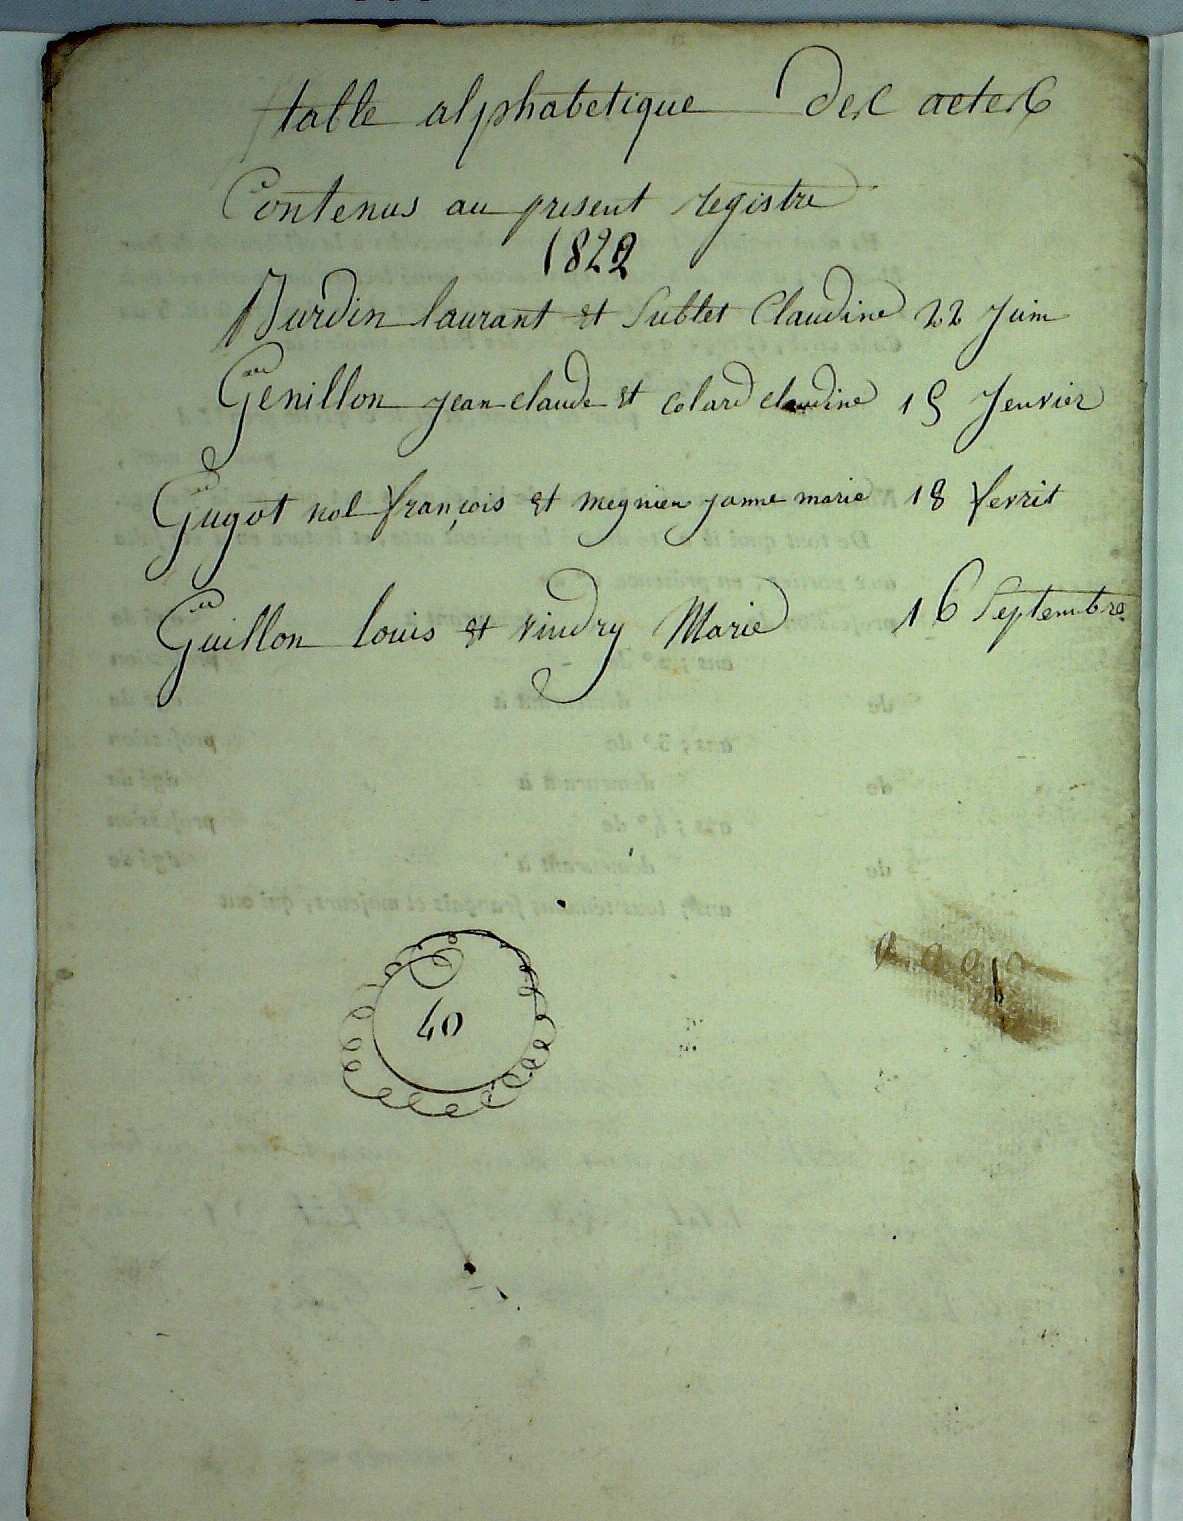 table alphabetique des actes
Contenus au present registre
1822
Burdin laurant et Sublet Claudine 22 Juin
Genillon jean claude et colard claudine 15 Jenvier
Guyot nol françois et megnien janne marie 18 fevrit
Guillon louis et vindry Marie 16 Septembre
40